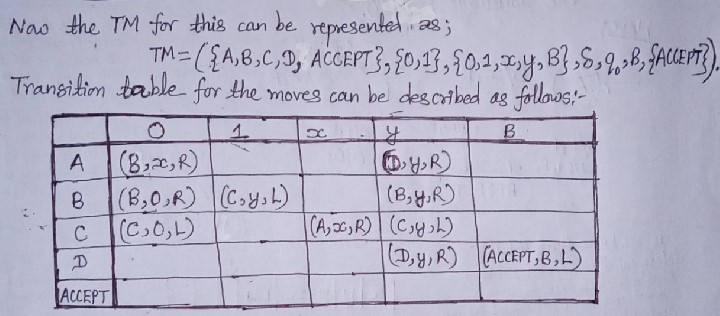 Now the TM for this can be represented as;
TM = ({A,B,C,D, ACCEPT}, {0,1}, {0,1,x,y,B}, δ, q₀, B, {ACCEPT}).
Transition table for the moves can be described as follows:-
0 1 x y B
A (B,x,R) (D,y,R)
B (B,0,R) (C,y,L) (B,y,R)
C (C,0,L) (A,x,R) (C,y,L)
D (D,y,R) (ACCEPT,B,L)
ACCEPT